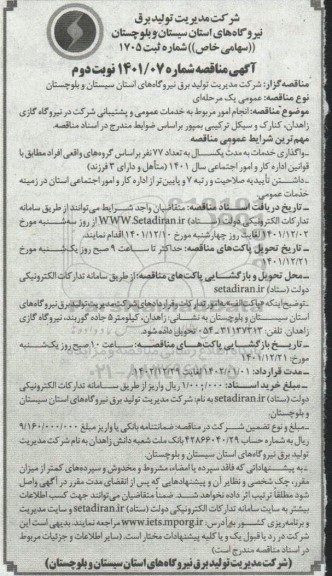 شرکت مدیریت تولید برق
نیروگاه‌های استان سیستان و بلوچستان
((سهامی خاص)) شماره ثبت ۱۷۰۵
آگهی مناقصه شماره ۱۴۰۱/۰۷ نوبت دوم
مناقصه‌گزار: شرکت مدیریت تولید برق نیروگاه‌های استان سیستان و بلوچستان
نوع مناقصه: عمومی یک مرحله‌ای
موضوع مناقصه: انجام امور مربوط به خدمات عمومی و پشتیبانی شرکت در نیروگاه گازی
زاهدان، کنارک و سیکل ترکیبی بمپور براساس ضوابط مندرج در اسناد مناقصه.
مهم‌ترین شرایط عمومی مناقصه
ـ واگذاری خدمات به مدت یکسال به تعداد ۷۷ نفر براساس گروه‌های واقعی افراد مطابق با
قوانین اداره کار و امور اجتماعی سال ۱۴۰۱ (متأهل و دارای ۳ فرزند)
ـ داشتن تأییدیه صلاحیت و رتبه ۷ و پایین‌تر از اداره کار و امور اجتماعی استان در زمینه
خدمات عمومی
ـ تاریخ دریافت اسناد مناقصه: متقاضیان واجد شرایط می‌توانند از طریق سامانه
تدارکات الکترونیکی دولت (ستاد) WWW.Setadiran.ir از روز سه‌شنبه مورخ
۱۴۰۱/۱۲/۰۲ لغایت روز چهارشنبه مورخ ۱۴۰۱/۱۲/۱۰ اقدام نمایند.
ـ تاریخ تحویل پاکت‌های مناقصه: حداکثر تا ساعت ۹ صبح روز یک‌شنبه مورخ
۱۴۰۱/۱۲/۲۱
ـ محل تحویل و بازگشایی پاکت‌های مناقصه: از طریق سامانه تدارکات الکترونیکی
دولت (ستاد) setadiran.ir
ـ توضیح اینکه پاکت الف به امور تدارکات و قراردادهای شرکت مدیریت تولید برق نیروگاه‌های
استان سیستان و بلوچستان به نشانی: زاهدان، کیلومتر ۵ جاده گوربند، نیروگاه گازی
زاهدان تلفن: ۳۱۱۳۷۳۱۳-۰۵۴ تحویل داده شود
ـ تاریخ بازگشایی پاکت‌های مناقصه: ساعت ۱۰ صبح روز یک‌شنبه
مورخ: ۱۴۰۱/۱۲/۲۱
ـ مدت قرارداد: ۱۴۰۲/۰۱/۰۱ لغایت ۱۴۰۲/۱۲/۲۹
ـ مبلغ خرید اسناد: ۱/۰۰۰/۰۰۰ ریال واریز از طریق سامانه تدارکات الکترونیکی
دولت (ستاد) setadiran.ir به نام: شرکت مدیریت تولید برق نیروگاه‌های استان سیستان
و بلوچستان.
ـ مبلغ و نوع تضمین شرکت در مناقصه: ضمانتنامه بانکی یا واریز مبلغ ۹/۱۶۰/۰۰۰/۰۰۰
ریال به شماره حساب ۴۲۸۶۶۰۴۰/۲۹ بانک ملت شعبه دانش زاهدان به نام شرکت مدیریت
تولید برق نیروگاه‌های استان سیستان و بلوچستان.
ـ به پیشنهاداتی که فاقد سپرده یا امضاء، مشروط و مخدوش و سپرده‌های کمتر از میزان
مقرر، چک شخصی و نظایر آن و پیشنهادهایی که پس از انقضای مدت مقرر در آگهی واصل
شود مطلقاً ترتیب اثر داده نخواهد شد. ضمناً متقاضیان می‌توانند جهت کسب اطلاعات
بیشتر به سایت سامانه تدارکات الکترونیکی دولت (ستاد) setadiran.ir و سایت مدیریت
و برنامه‌ریزی کشور به آدرس: www.iets.mporg.ir مراجعه نمایند. بدیهی است این
شرکت در رد یا قبول یک و یا کلیه پیشنهادات مختار است. (سایر اطلاعات و جزئیات مربوط
در اسناد مناقصه مندرج است)
(شرکت مدیریت تولید برق نیروگاه‌های استان سیستان و بلوچستان)